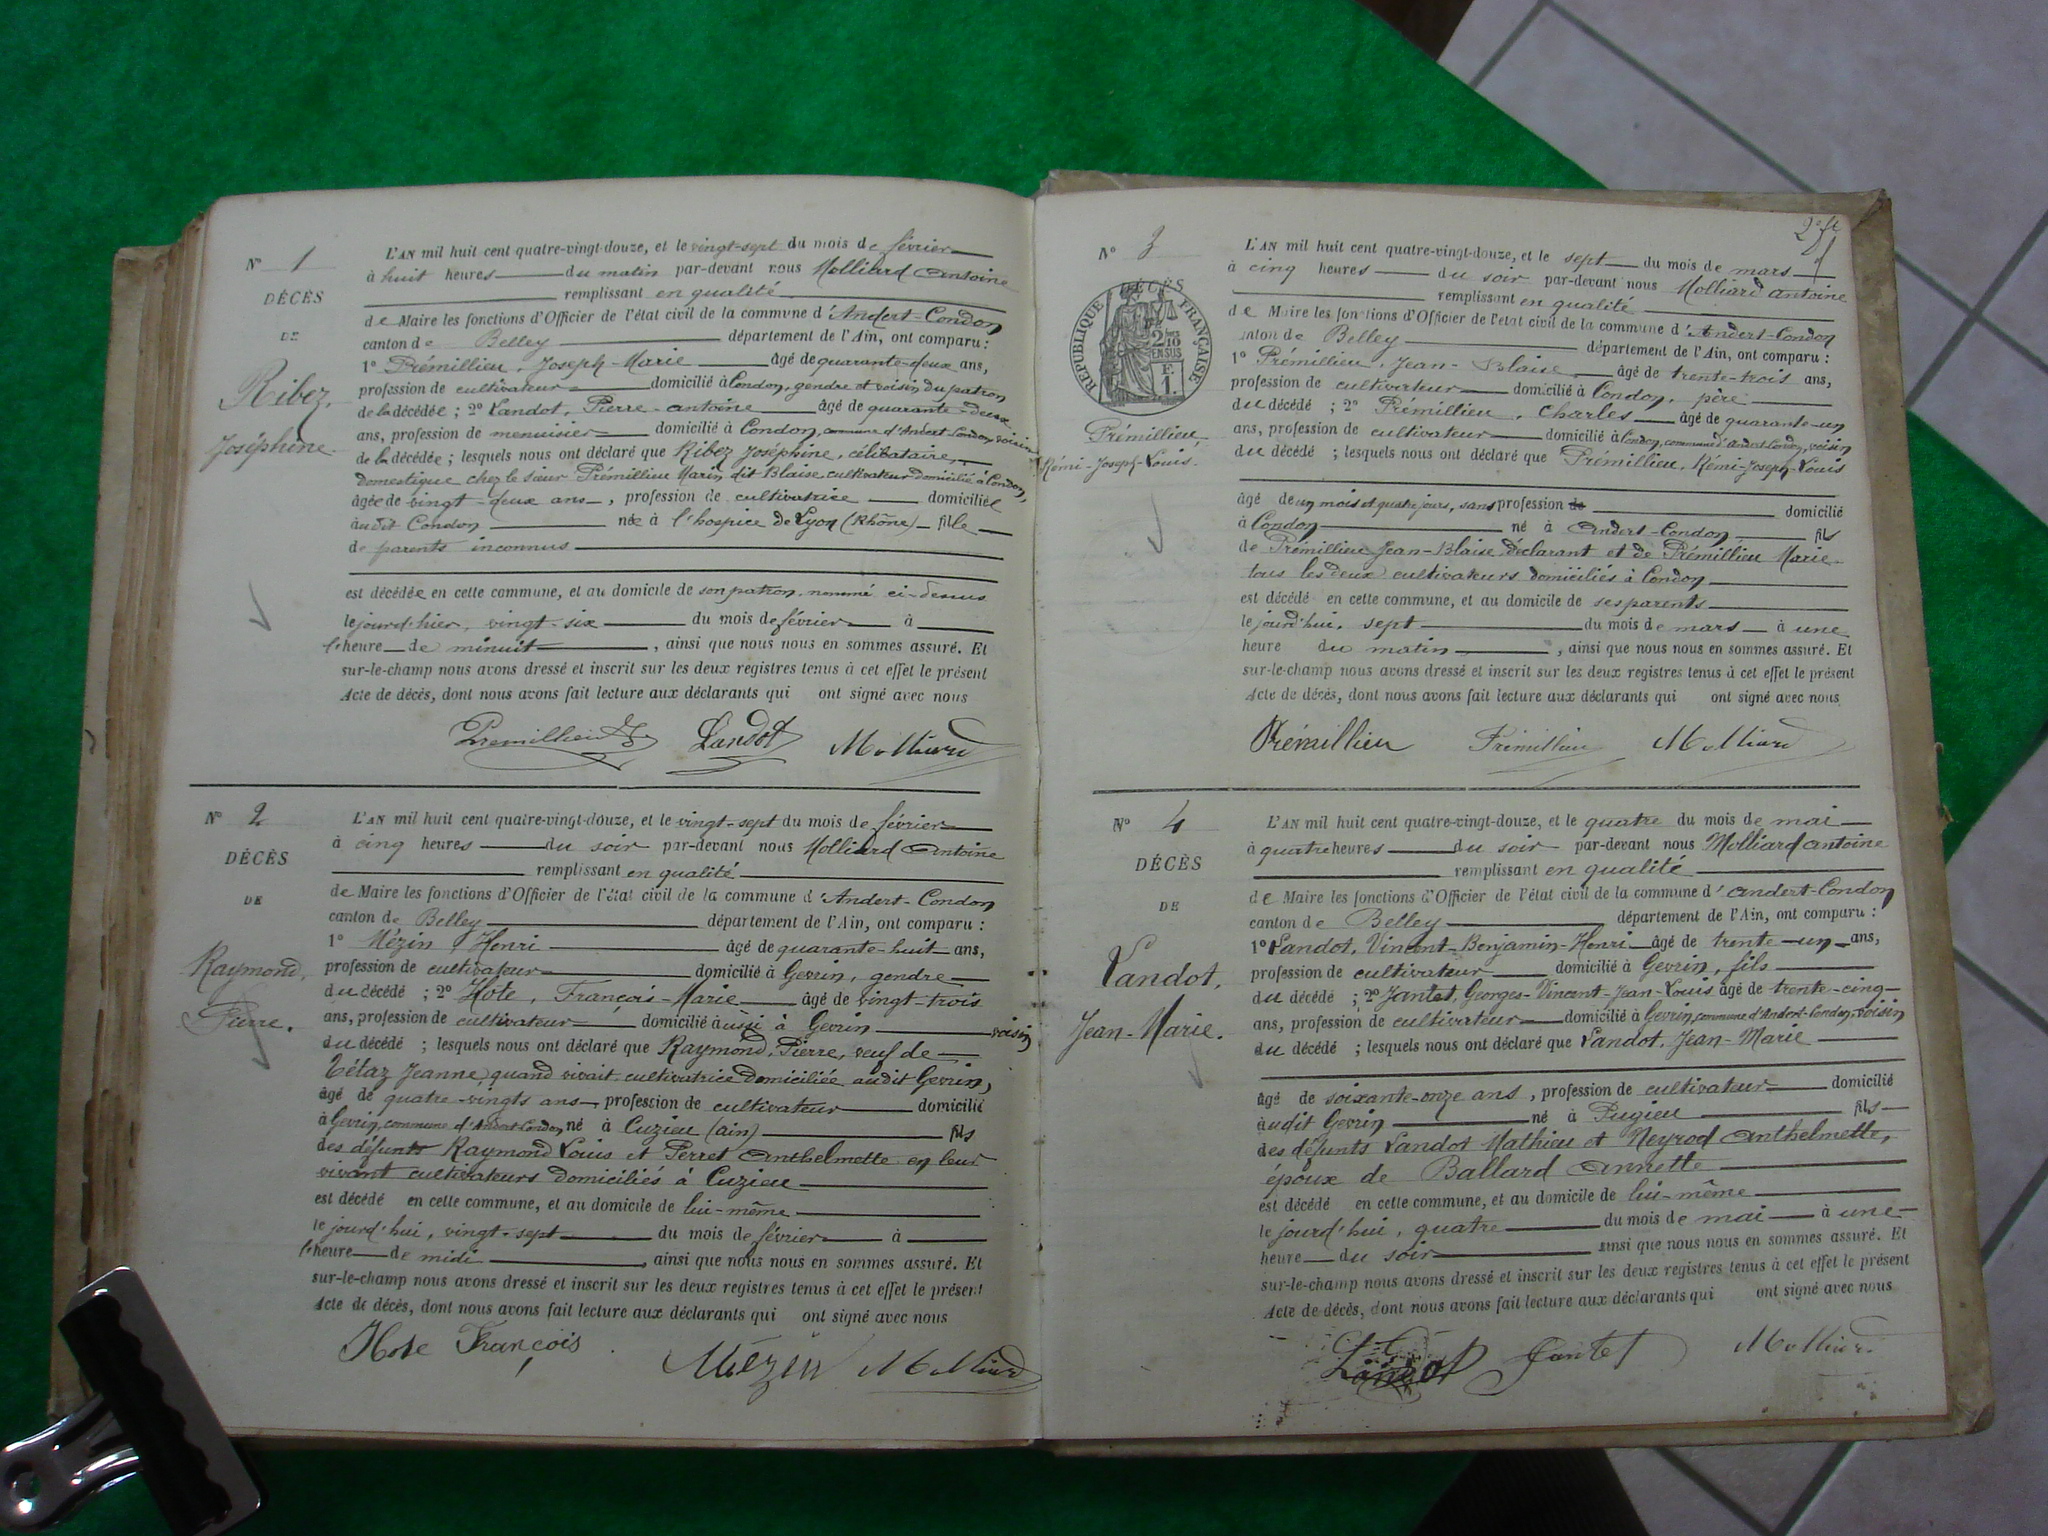 N° 1
DÉCÈS
DE
Ribez,
Joséphine.
L'AN mil huit cent quatre-vingt-douze, et le vingt-sept du mois de février
à huit heures du matin par-devant nous Molliard Antoine
remplissant en qualité
de Maire les fonctions d'Officier de l'état civil de la commune d'Andert-Condon
canton de Belley département de l'Ain, ont comparu :
1° Prémillieu, Joseph-Marie âgé de quarante-deux ans,
profession de cultivateur domicilié à Condon, gendre et voisin du patron
de la décédée ; 2° Landot, Pierre-antoine âgé de quarante-deux
ans, profession de menuisier domicilié à Condon, commune d'Andert-Condon, voisin
de la décédée ; lesquels nous ont déclaré que Ribez Joséphine, célibataire,
domestique chez le sieur Prémillieu Marin dit Blaise, cultivateur domicilié à Condon,
âgée de vingt-deux ans, profession de cultivatrice domiciliée
audit Condon née à l'hospice de Lyon (Rhône) fille
de parents inconnus
est décédée en cette commune, et au domicile de son patron nommé ci-dessus
le jourd'hier, vingt-six du mois de février à
l'heure de minuit, ainsi que nous nous en sommes assuré. Et
sur-le-champ nous avons dressé et inscrit sur les deux registres tenus à cet effet le présent
Acte de décès, dont nous avons fait lecture aux déclarants qui ont signé avec nous
Prémillieu Landot Molliard
N° 2
DÉCÈS
DE
Raymond,
Pierre.
L'AN mil huit cent quatre-vingt-douze, et le vingt-sept du mois de février
à cinq heures du soir par-devant nous Molliard Antoine
remplissant en qualité
de Maire les fonctions d'Officier de l'état civil de la commune d'Andert-Condon
canton de Belley département de l'Ain, ont comparu :
1° Mézin Henri âgé de quarante-huit ans,
profession de cultivateur domicilié à Gevrin, gendre
du décédé ; 2° Hote, François-Marie âgé de vingt-trois
ans, profession de cultivateur domicilié aussi à Gevrin voisin
du décédé ; lesquels nous ont déclaré que Raymond, Pierre, veuf de
Tétaz Jeanne, quand vivait cultivatrice domiciliée audit Gevrin,
âgé de quatre-vingts ans, profession de cultivateur domicilié
à Gevrin, commune d'Andert-Condon né à Cuzieu (ain) fils
des défunts Raymond Louis et Perret Anthelmette en leur
vivant cultivateurs domiciliés à Cuzieu
est décédé en cette commune, et au domicile de lui-même
le jourd'hui, vingt-sept du mois de février à
l'heure de midi, ainsi que nous nous en sommes assuré. Et
sur-le-champ nous avons dressé et inscrit sur les deux registres tenus à cet effet le présent
Acte de décès, dont nous avons fait lecture aux déclarants qui ont signé avec nous
Hote François Mézin Molliard
N° 3
DÉCÈS
RÉPUBLIQUE FRANÇAISE
Prémillieu,
Rémi-Joseph-Louis.
L'AN mil huit cent quatre-vingt-douze, et le sept du mois de mars
à cinq heures du soir par-devant nous Molliard antoine
remplissant en qualité
de Maire les fonctions d'Officier de l'état civil de la commune d'Andert-Condon
canton de Belley département de l'Ain, ont comparu :
1° Prémillieu, Jean-Blaise âgé de trente-trois ans,
profession de cultivateur domicilié à Condon, père
du décédé ; 2° Prémillieu, Charles âgé de quarante-un
ans, profession de cultivateur domicilié à Condon, commune d'Andert-Condon, voisin
du décédé ; lesquels nous ont déclaré que Prémillieu, Rémi-Joseph-Louis
âgé de un mois et quatre jours, sans profession de domicilié
à Condon né à Andert-Condon fils
de Prémillieu Jean-Blaise, déclarant et de Prémillieu Marie
tous les deux cultivateurs domiciliés à Condon
est décédé en cette commune, et au domicile de ses parents
le jourd'hui, sept du mois de mars à une
heure du matin, ainsi que nous nous en sommes assuré. Et
sur-le-champ nous avons dressé et inscrit sur les deux registres tenus à cet effet le présent
Acte de décès, dont nous avons fait lecture aux déclarants qui ont signé avec nous
Prémillieu Prémillieu Molliard
N° 4
DÉCÈS
DE
Landot,
Jean-Marie.
L'AN mil huit cent quatre-vingt-douze, et le quatre du mois de mai
à quatre heures du soir par-devant nous Molliard antoine
remplissant en qualité
de Maire les fonctions d'Officier de l'état civil de la commune d'andert-Condon
canton de Belley département de l'Ain, ont comparu :
1° Landot, Vincent-Benjamin-Henri âgé de trente-un ans,
profession de cultivateur domicilié à Gevrin, fils
du décédé ; 2° Jantet, Georges-Vincent-Jean-Louis âgé de trente-cinq
ans, profession de cultivateur domicilié à Gevrin, commune d'Andert-Condon, voisin
du décédé ; lesquels nous ont déclaré que Landot, Jean-Marie
âgé de soixante-onze ans, profession de cultivateur domicilié
audit Gevrin né à Pugieu fils
des défunts Landot Mathieu et Neyrod Anthelmette,
époux de Ballard Annette
est décédé en cette commune, et au domicile de lui-même
le jourd'hui, quatre du mois de mai à une
heure du soir ainsi que nous nous en sommes assuré. Et
sur-le-champ nous avons dressé et inscrit sur les deux registres tenus à cet effet le présent
Acte de décès, dont nous avons fait lecture aux déclarants qui ont signé avec nous
Landot Jantet Molliard